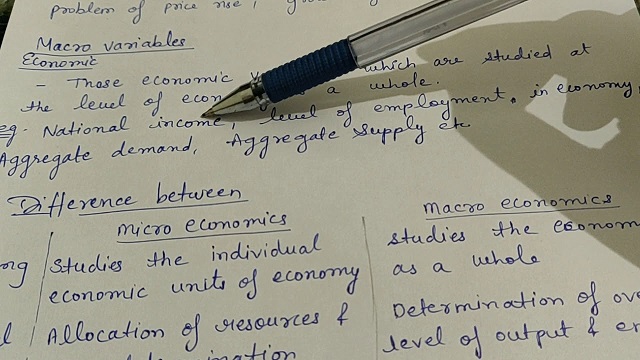 problem of price rise,
Macro variables
Economic
- Those economic which are studied at
the level of econ a whole.
eg. National income, level of employment. in economy,
Aggregate demand, Aggregate supply etc
Difference between
micro economics
Macro economics
Studies the individual
economic units of economy
studies the econom
as a whole
Allocation of resources &
Determination of ov
level of output &